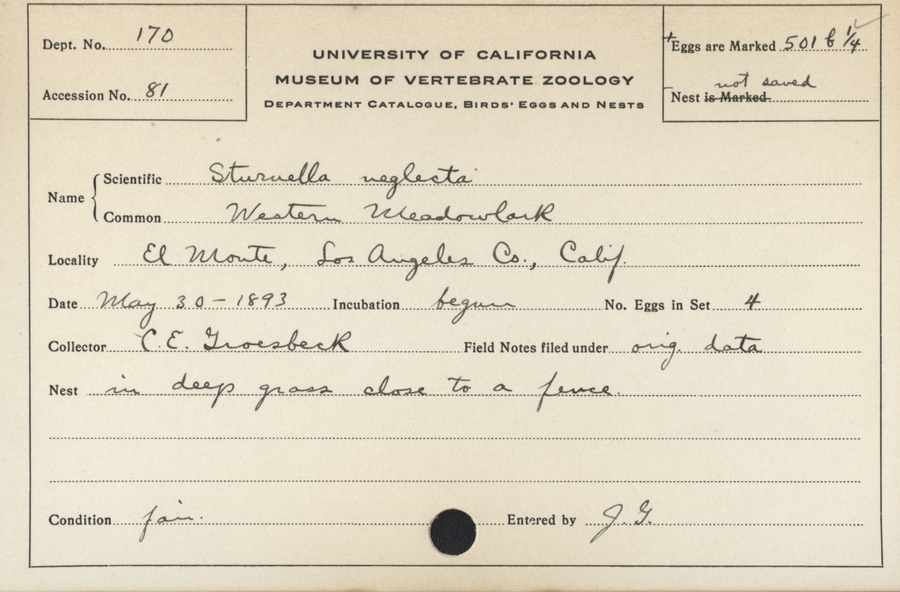 Dept. No. 170
Accession No. 81
UNIVERSITY OF CALIFORNIA
MUSEUM OF VERTEBRATE ZOOLOGY
DEPARTMENT CATALOGUE, BIRDS' EGGS AND NESTS
+Eggs are Marked 501 b 1/4
not saved
Nest is Marked
Name
Scientific Sturnella neglecta
Common Western Meadowlark
Locality El Monte, Los Angeles Co., Calif.
Date May 30 - 1893 Incubation begun No. Eggs in Set 4
Collector C. E. Groesbeck Field Notes filed under orig. data
Nest in deep grass close to a fence.
Condition fair. Entered by J. G.